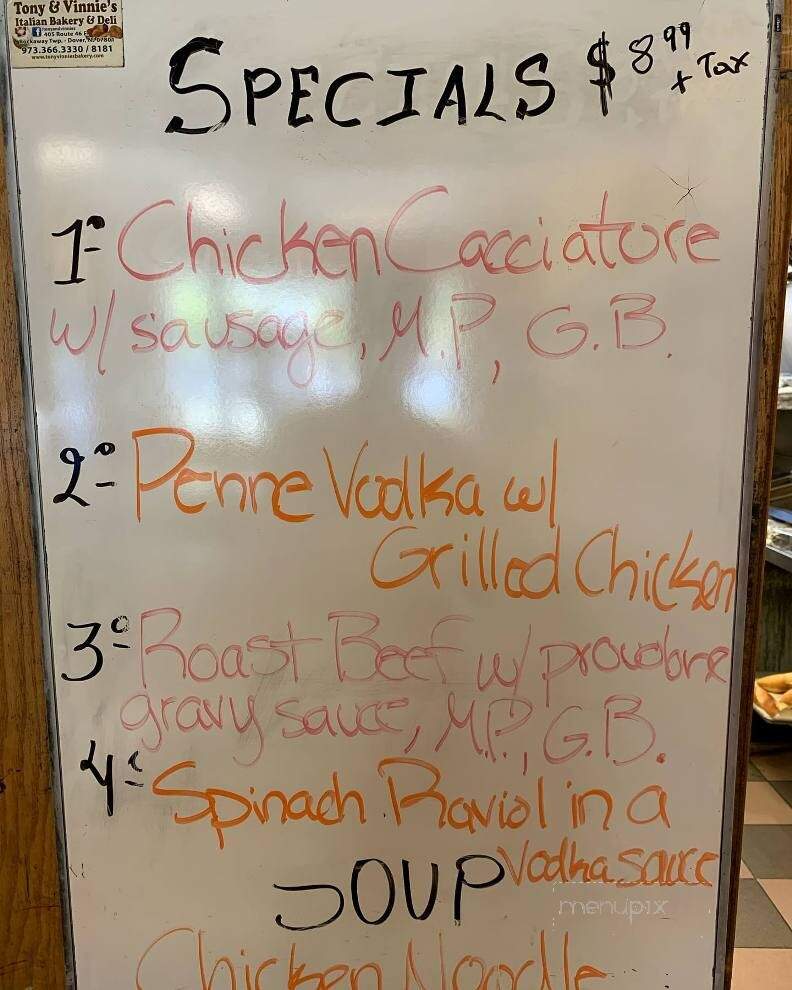 Tony & Vinnie's
Italian Bakery & Deli
tonyandvinnies
405 Route 46 E
Rockaway Twp. - Dover, NJ 07801
973.366.3330 / 8181
www.tonyvinniesbakery.com
SPECIALS $8.99
+ Tax
1º Chicken Cacciatore
w/ sausage, M.P, G.B.
2º Penne Vodka w/
Grilled Chicken
3º Roast Beef w/ provolone
gravy sauce, M.P., G.B.
4º Spinach Raviol in a
Vodka sauce
SOUP
menupix
Chicken Noodle